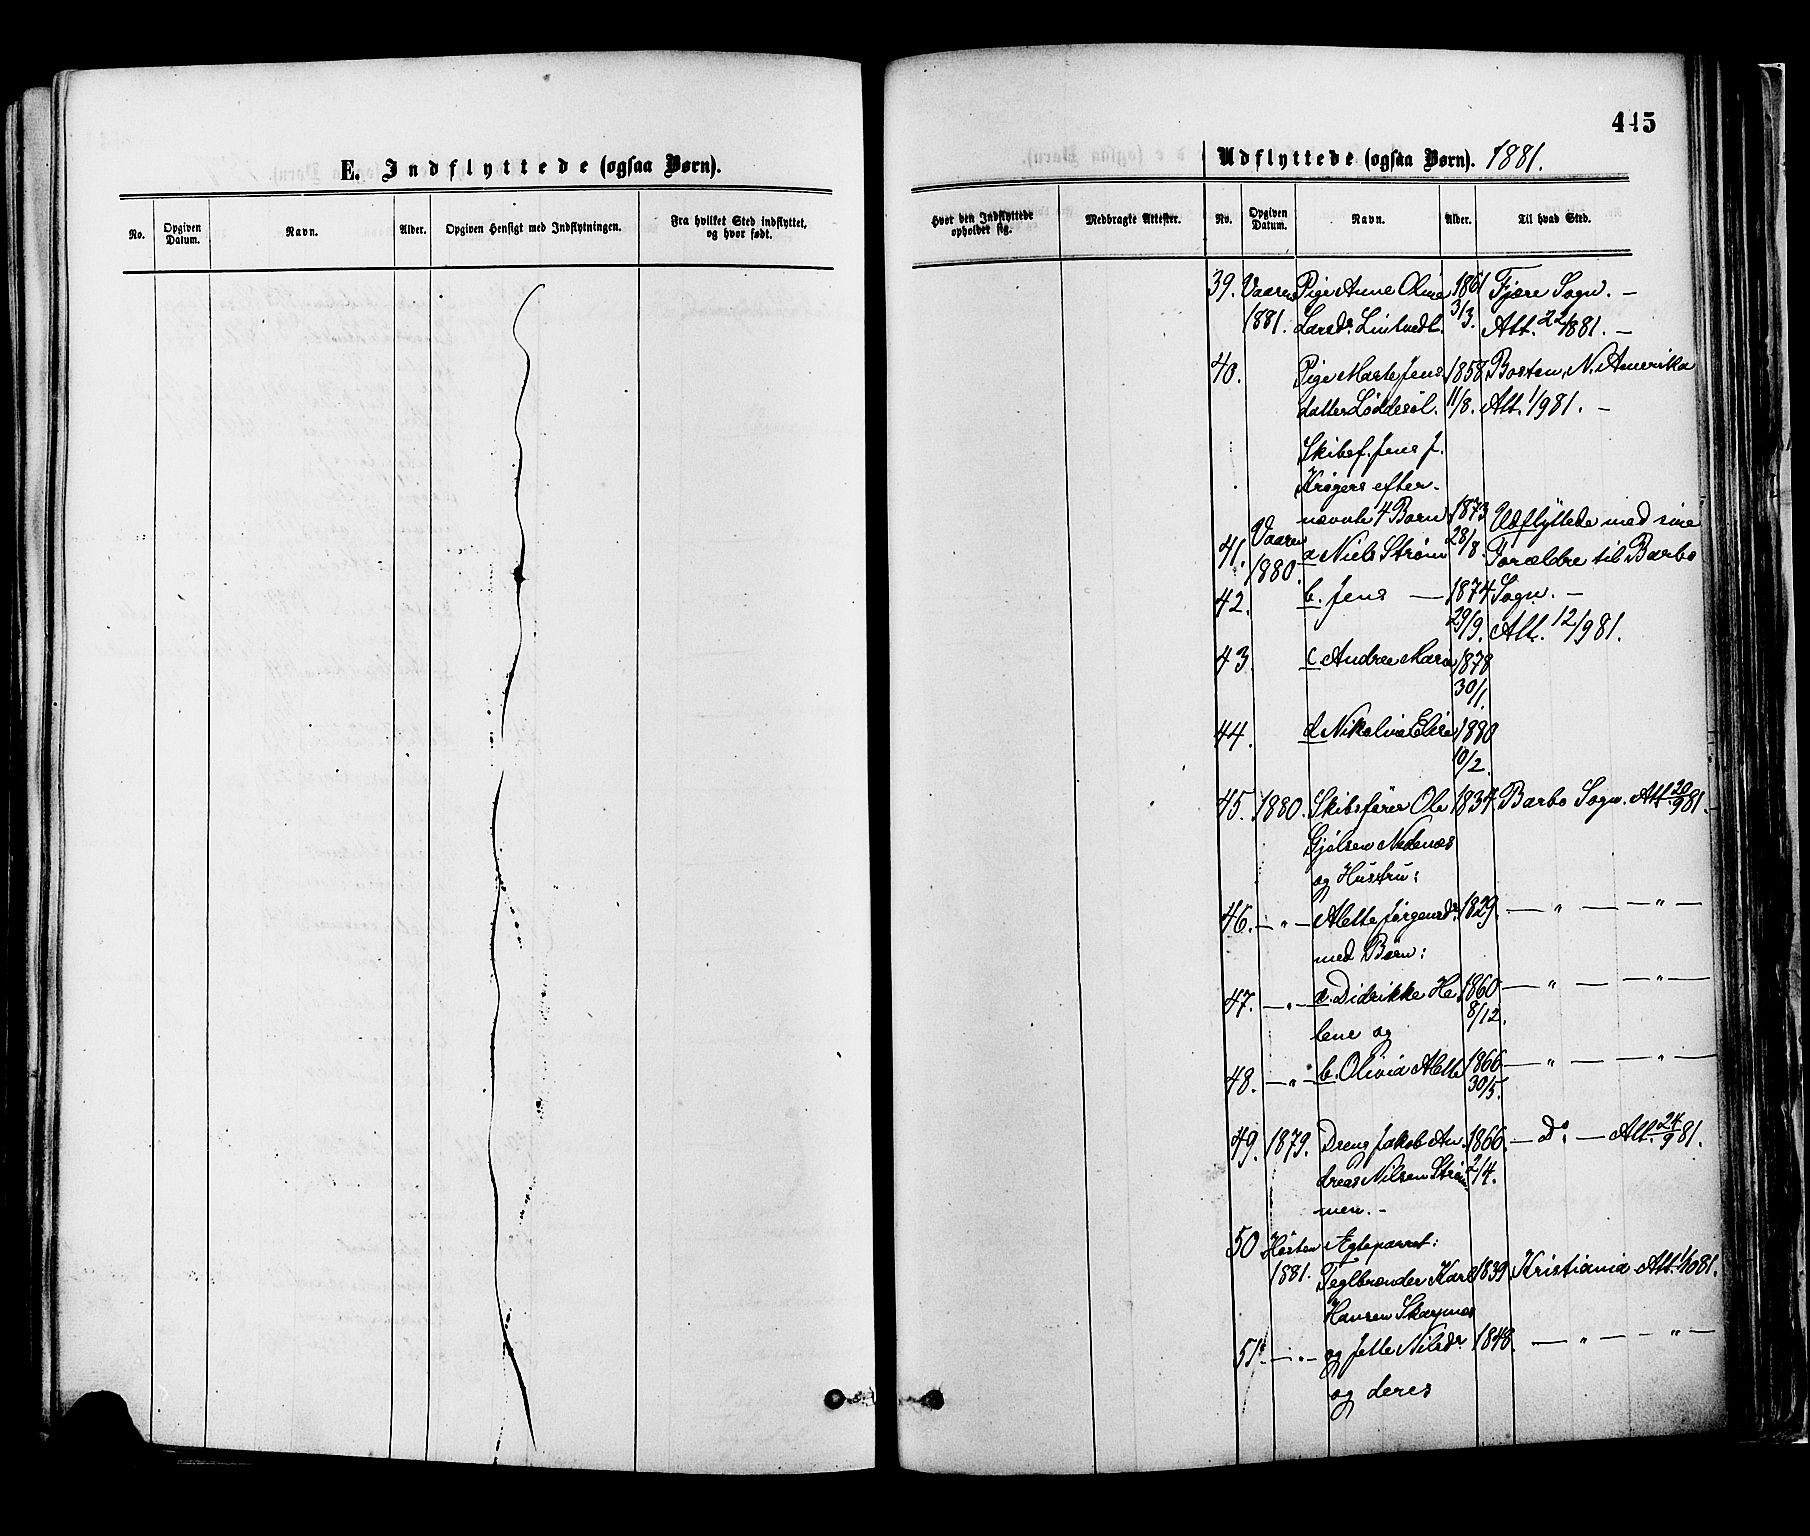 445
E. Indflyttede (ogsaa Børn).
No. Opgiven Datum. Navn. Alder. Opgiven Hensigt med Indflytningen. Fra hvilket Sted indflyttet, og hvor født.
Udflyttede (ogsaa Børn). 1881.
Hvor den Indflyttede opholder sig. Medbragte Attester. No. Opgiven Datum. Navn. Alder. Til hvad Sted.
39. Vaaren Pige Anne Oline 1861 Fjære Sogn. —
1881. Larsdr. 3/3. Att. 22/ 1881. —
40. Pige Marte Jens 1858 Boston, N. Amerika
datter Løddesøl. 11/8. Att. 1/9 81. —
Skibsf. Jens J.
Krøgers efter-
nævnte 4 Børn 1873 Udflyttede med sine
41. Vaaren 1880. a Niels Strøm 28/8. Forældre til Barbo
42. b. Jens — 1874 Sogn. —
29/9. Att. 12/9 81.
43. c Andrea Maria 1878
30/1.
44. d Nikoline Elise 1880
10/2.
45. 1880. Skibsfører Ole 1834. Barbo Sogn. Att. 20/9 81. —
Gjølsen Nedenæs
og Hustru:
46. — " — Alette Jørgensdr. 1829. — " — — " —
med Børn:
47. — " — a. Didrikke He 1860 — " — — " —
lene og 8/12.
48. — " — b. Olivia Alette 1866 — " — — " —
30/5.
49. 1879. Dreng Jakob An 1866. — Do. — Att. 24/9 81.
dreas Nilsen Strøm 2/4.
men. —
50 Høsten Ægteparret:
1881. Teglbrænder Karl 1839 Kristiania Att. 1/10 81.
Hansen Skarpnæs
51. — " — og Jette Nilsdr. 1848. — " — — " —
og deres